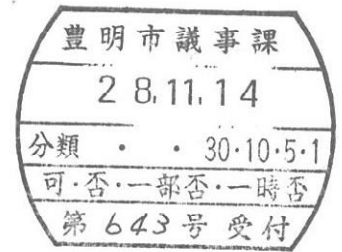 豊明市議事課
28.11.14
分類 ・ ・ 30・10・5・1
可・否・一部否・一時否
第643号受付